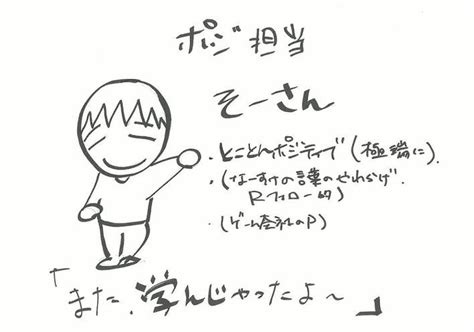 ポジ担当
そーさん
・とことんポジティブ(極端に)
・(なーすけの言葉のやわらげ
フォロー的
・(ゲーム会社のP)
「また、学んじゃったよ～」